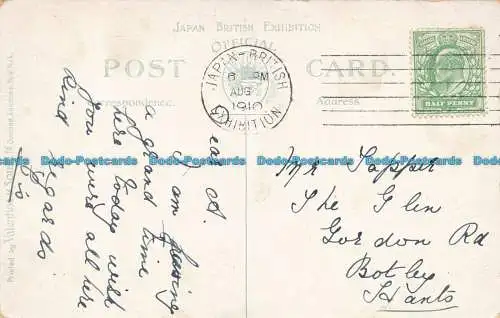 JAPAN BRITISH EXHIBITION
OFFICIAL
POST CARD.
Correspondence.
Address.
JAPAN-BRITISH
6 PM
AUG
1910
EXHIBITION
HALF PENNY
ear A.
I am having
a grand time
here today wish
you were all here
Kind regards
Mr Tapper
The Glen
Gordon Rd
Botley
Hants
Printed by Valentine & Sons
Dodo-Postcards Dodo-Postcards Dodo-Postcards Dodo-Postcards Dodo-Postcards Dodo-Postcards